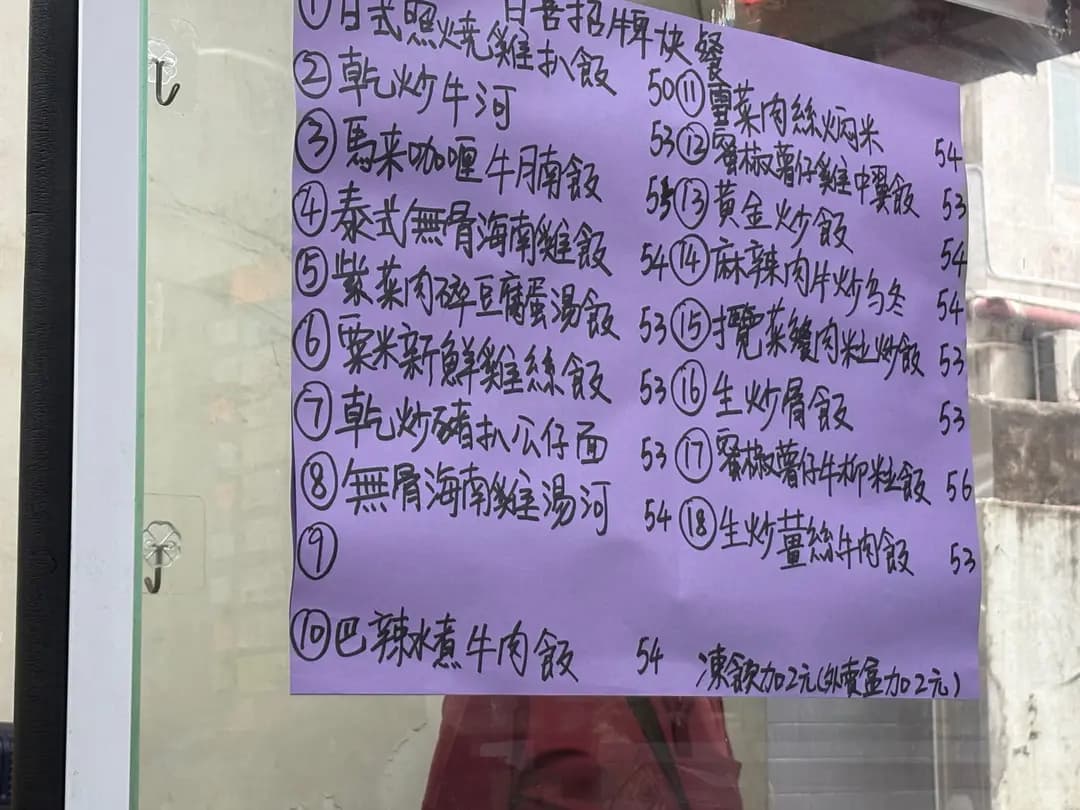 招牌快餐
① 日式照燒雞扒飯 50
② 乾炒牛河 53
③ 馬来咖喱牛腩飯
④ 泰式無骨海南雞飯 54
⑤ 紫菜肉碎豆腐蛋湯飯 53
⑥ 粟米新鮮雞絲飯 53
⑦ 乾炒豬扒公仔面 53
⑧ 無骨海南雞湯河 54
⑨
⑩ 巴辣水煮牛肉飯 54
⑪ 雪菜肉絲焖米 54
⑫ 蜜椒薯仔雞中翼飯 53
⑬ 黃金炒飯 54
⑭ 麻辣肉牛炒乌冬 54
⑮ 攬菜雞肉粒炒飯 53
⑯ 生炒骨飯 53
⑰ 蜜椒薯仔牛柳粒飯 56
⑱ 生炒薑絲牛肉飯 53
凍飲加2元(外賣盒加2元)